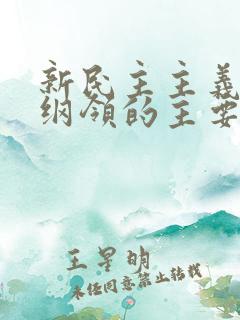 新民主主義
纲領的主要
王星明
未经同意禁止转载